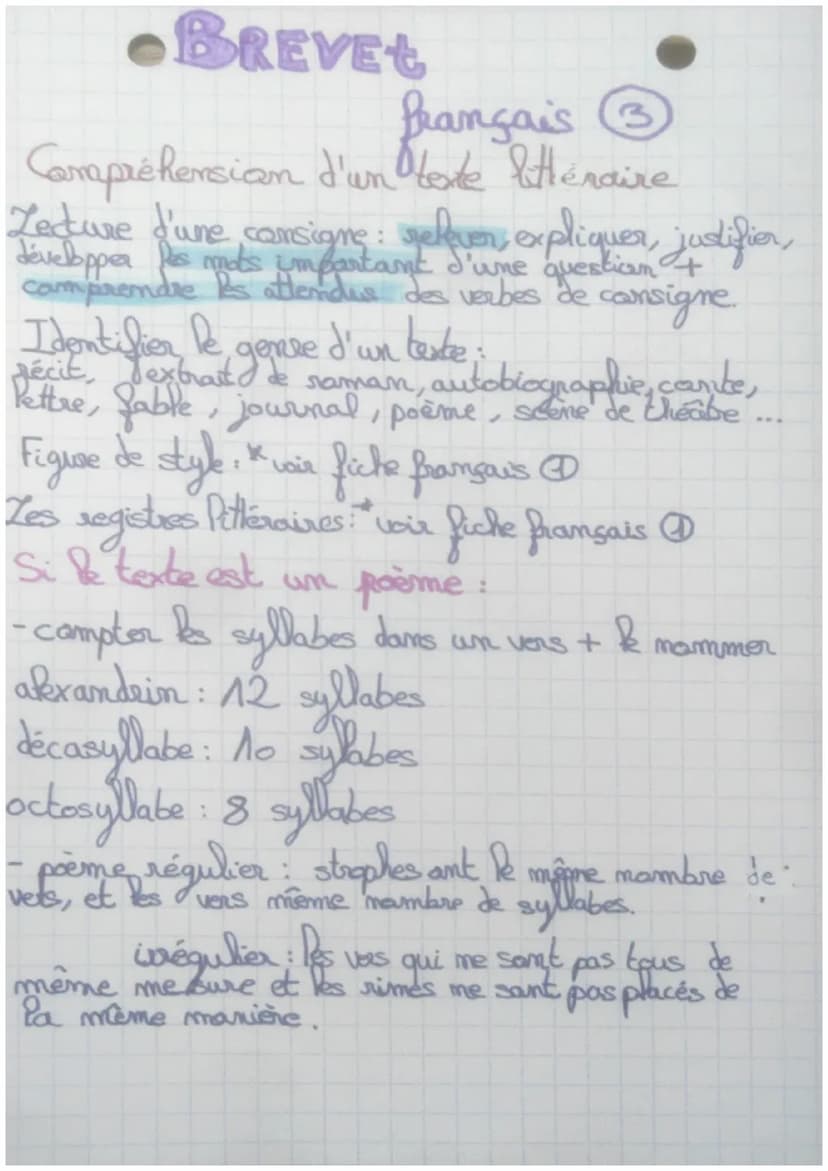 BREVEt
français ③
Compréhension d'un texte littéraire
Lecture d'une consigne : relever, expliquer, justifier,
développer les mots important d'une question +
comprendre les attendus des verbes de consigne.
Identifier le genre d'un texte :
récit, extrait de roman, autobiographie, conte,
lettre, fable, journal, poème, scène de théâtre ...
Figure de style : * voir fiche français ①
Les registres littéraires : * voir fiche français ①
Si le texte est un poème :
- compter les syllabes dans un vers + le nommer
alexandrin : 12 syllabes
décasyllabe : 10 syllabes
octosyllabe : 8 syllabes
- poème régulier : strophes ont le même nombre de :
vers, et les vers même nombre de syllabes.
irrégulier : les vers qui ne sont pas tous de
même mesure et les rimes ne sont pas placés de
la même manière.